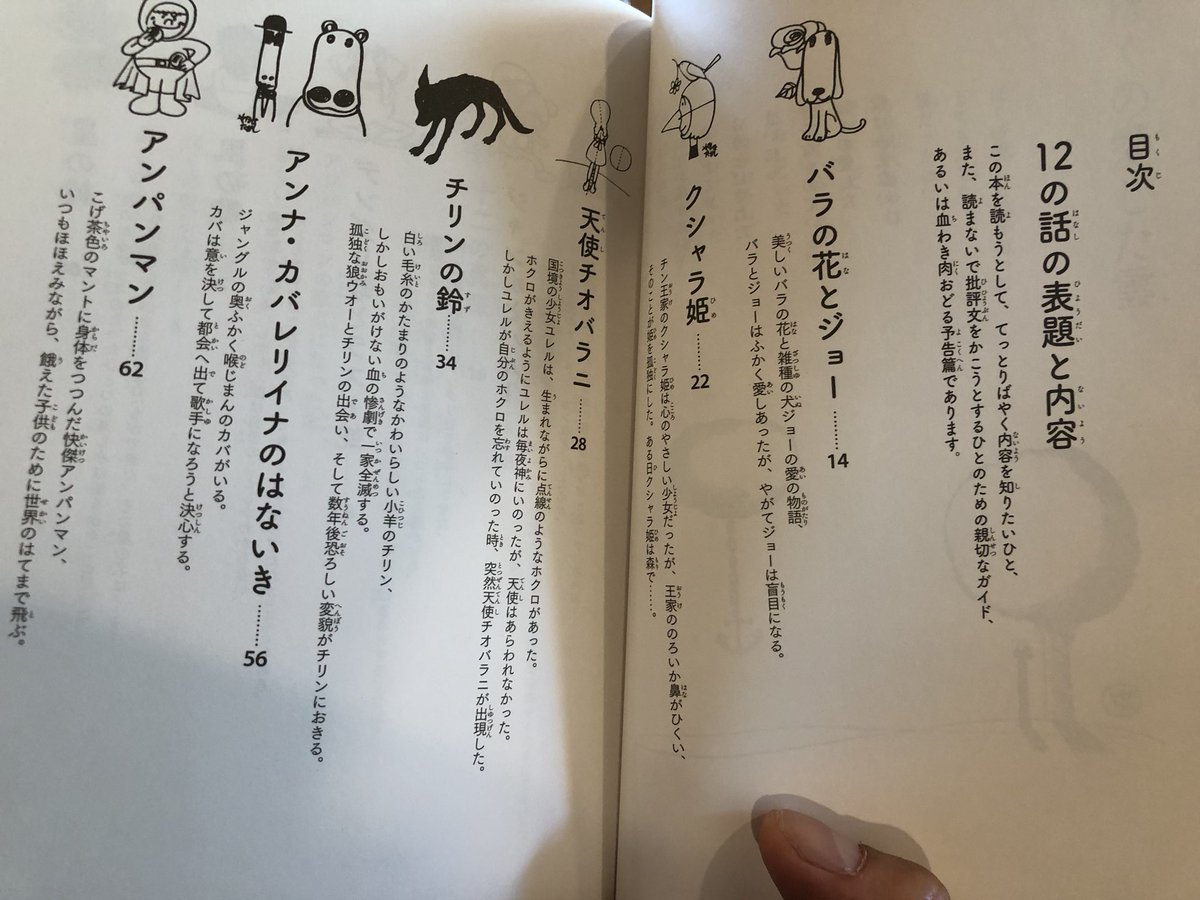 目次
12の話の表題と内容
この本を読もうとして、てっとりばやく内容を知りたいひと、
また、読まないで批評文をかこうとするひとのための親切なガイド、
あるいは血わき肉おどる予告篇であります。
バラの花とジョー………14
美しいバラの花と雑種の犬ジョーの愛の物語、
バラとジョーはふかく愛しあったが、やがてジョーは盲目になる。
クシャラ姫………22
チン王家のクシャラ姫は心のやさしい少女だったが、王家ののろいか鼻がひくい、
そのことが姫を孤独にした。ある日クシャラ姫は森で……。
天使チオバラニ………28
国境の少女ユレルは、生まれながらに点線のようなホクロがあった。
ホクロがきえるようにユレルは毎夜神にいのったが、天使はあらわれなかった。
しかしユレルが自分のホクロを忘れていのった時、突然天使チオバラニが出現した。
チリンの鈴………34
白い毛糸のかたまりのようなかわいらしい小羊のチリン、
しかしおもいがけない血の惨劇で一家全滅する。
孤独な狼ウオーとチリンの出会い、そして数年後恐ろしい変貌がチリンにおきる。
アンナ・カバレリイナのはないき………56
ジャングルの奥ふかく喉じまんのカバがいる。
カバは意を決して都会へ出て歌手になろうと決心する。
アンパンマン………62
こげ茶色のマントに身体をつつんだ快傑アンパンマン、
いつもほほえみながら、餓えた子供のために世界のはてまで飛ぶ。